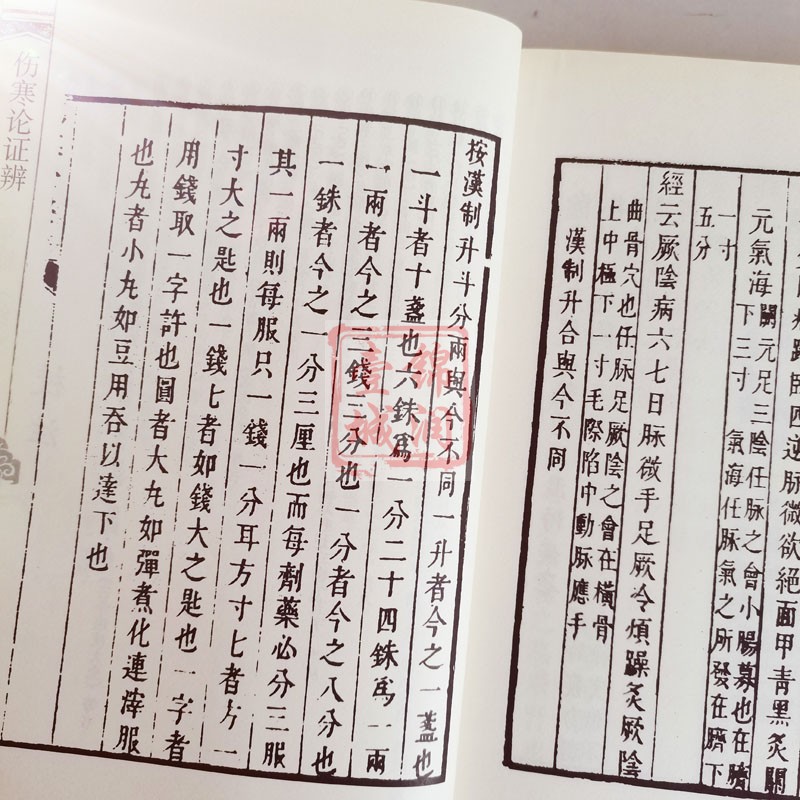 病踡臥四逆脉微欲絕面甲青黑灸關
元氣海
關元足三陰任脉之會小腸募也在臍
下三寸 氣海任脉氣之所發在臍下
一寸
五分
經云厥陰病六七日脉微手足厥冷煩躁灸厥陰
曲骨穴也任脉足厥陰之會在橫骨
上中極下一寸毛際陷中動脉應手
漢制升合與今不同
按漢制升斗分兩與今不同一升者今之一盞也
一斗者十盞也六銖爲一分二十四銖爲一兩
一兩者今之三錢三分也一分者今之八分也
一銖者今之一分三厘也而每劑藥必分三服
其一兩則每服只一錢一分耳方寸匕者方一
寸大之匙也一錢匕者如錢大之匙也一字者
用錢取一字許也圓者大丸如彈煮化連滓服
也丸者小丸如豆用吞以達下也
伤寒论证辨